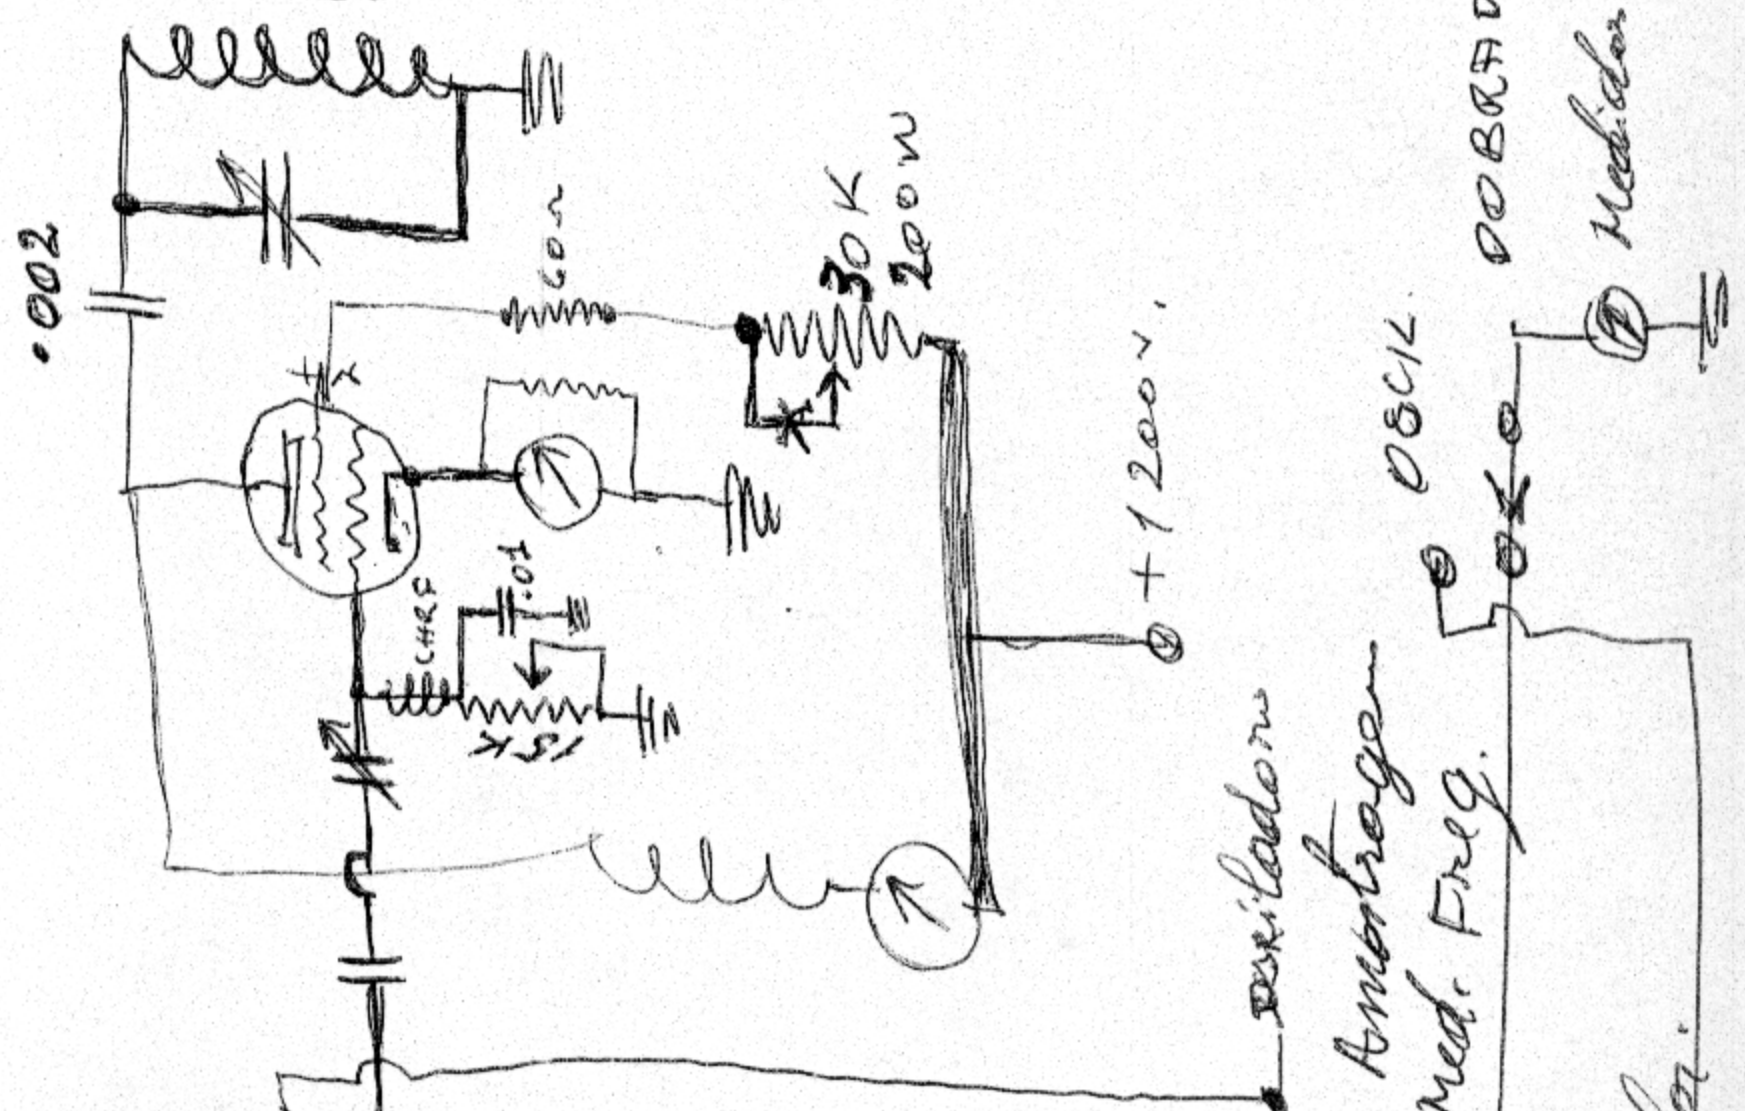 .002
60Ω
30K
200W
CHRF
.01
15K
+1200V.
OSCILADOR
Amostragem
med. Freq.
OSCIL
DOBRAD
Medidor